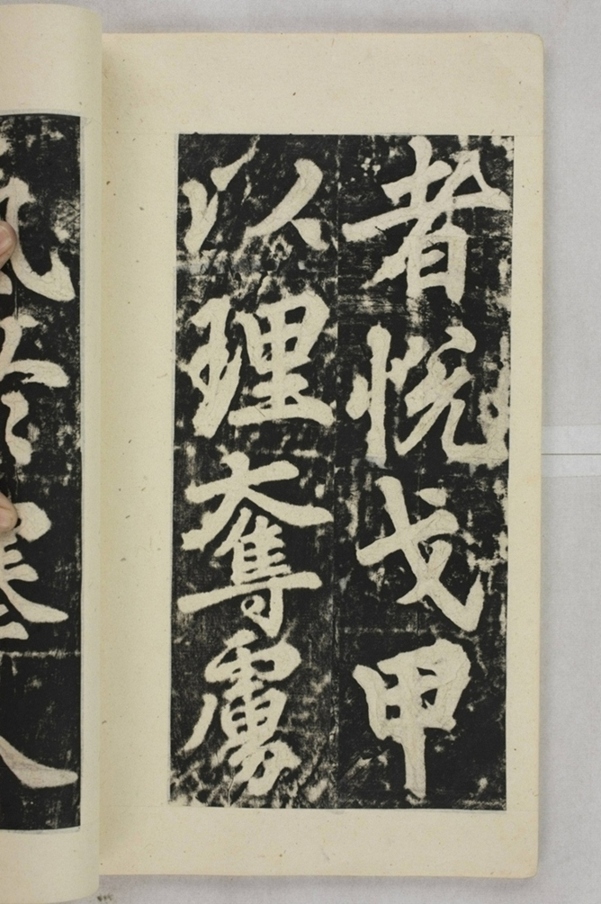 者悅戈甲
以理奪虜